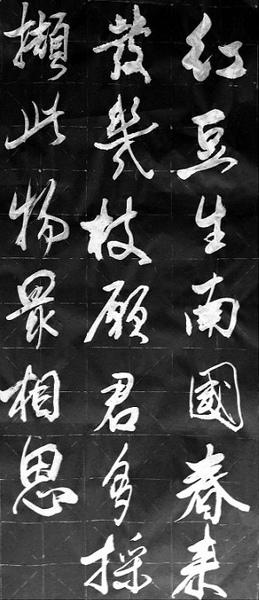 紅豆生南國春来
發幾枝願君多採
擷此物最相思